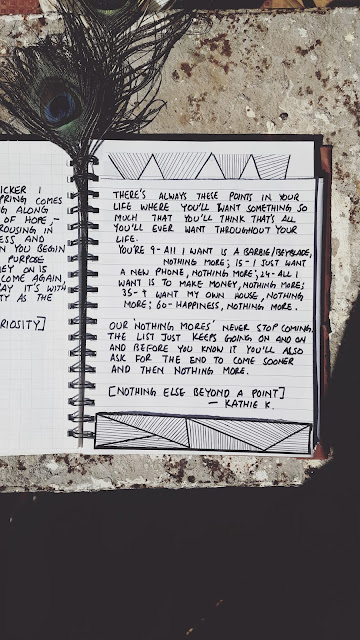 ICKER I
PRING COMES
G ALONG
OF HOPE,-
ROUSING IN
ESS AND
N YOU BEGIN
PURPOSE
EY ON IS
COME AGAIN,
AY IT'S WITH
TY AS THE
RIOSITY]
THERE'S ALWAYS THESE POINTS IN YOUR
LIFE WHERE YOU'LL WANT SOMETHING SO
MUCH THAT YOU'LL THINK THAT'S ALL
YOU'LL EVER WANT THROUGHOUT YOUR
LIFE.
YOU'RE 9- ALL I WANT IS A BARBIE/BEYBLADE,
NOTHING MORE; 15- I JUST WANT
A NEW PHONE, NOTHING MORE; 24- ALL I
WANT IS TO MAKE MONEY, NOTHING MORE;
35- I WANT MY OWN HOUSE, NOTHING
MORE; 60- HAPPINESS, NOTHING MORE.
OUR 'NOTHING MORES' NEVER STOP COMING,
THE LIST JUST KEEPS GOING ON AND ON
AND BEFORE YOU KNOW IT YOU'LL ALSO
ASK FOR THE END TO COME SOONER
AND THEN NOTHING MORE.
[NOTHING ELSE BEYOND A POINT]
— KATHIE K.